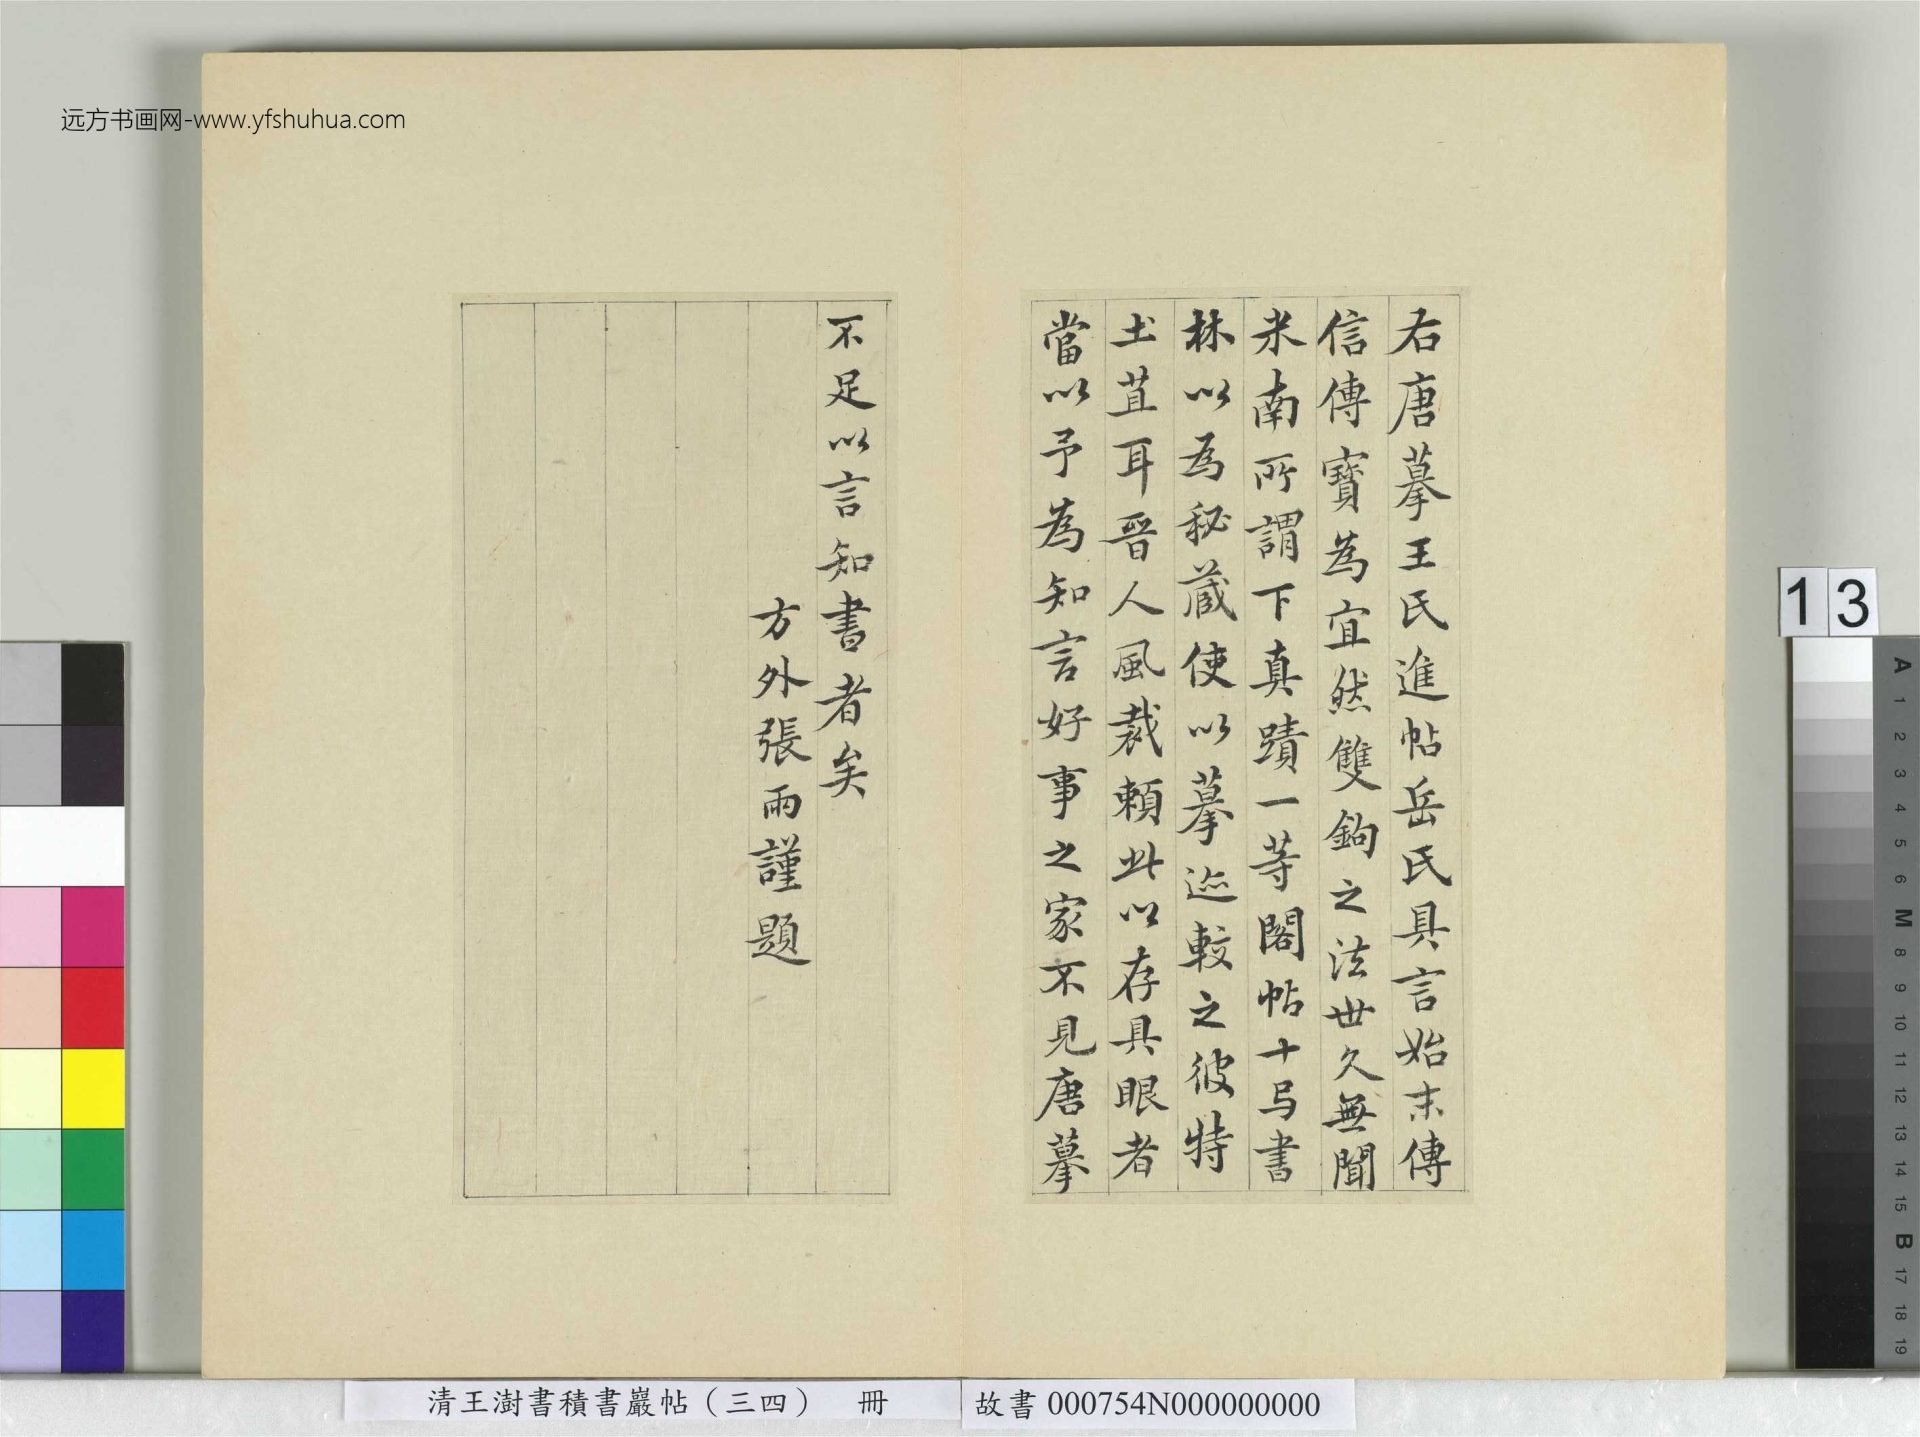 远方书画网-www.yfshuhua.com
右唐摹王氏進帖岳氏具言始末傳
信傳寶為宜然雙鉤之法世久無聞
米南所謂下真蹟一等閣帖十与書
林以為秘蔵使以摹迹較之彼特
土苴耳晉人風裁賴此以存具眼者
當以予為知言好事之家不見唐摹
不足以言知書者矣
方外張雨謹題
13
A 1 2 3 4 5 6 M 8 9 10 11 12 13 14 15 B 17 18 19
清王澍書積書巖帖（三四） 冊
故書 000754N000000000